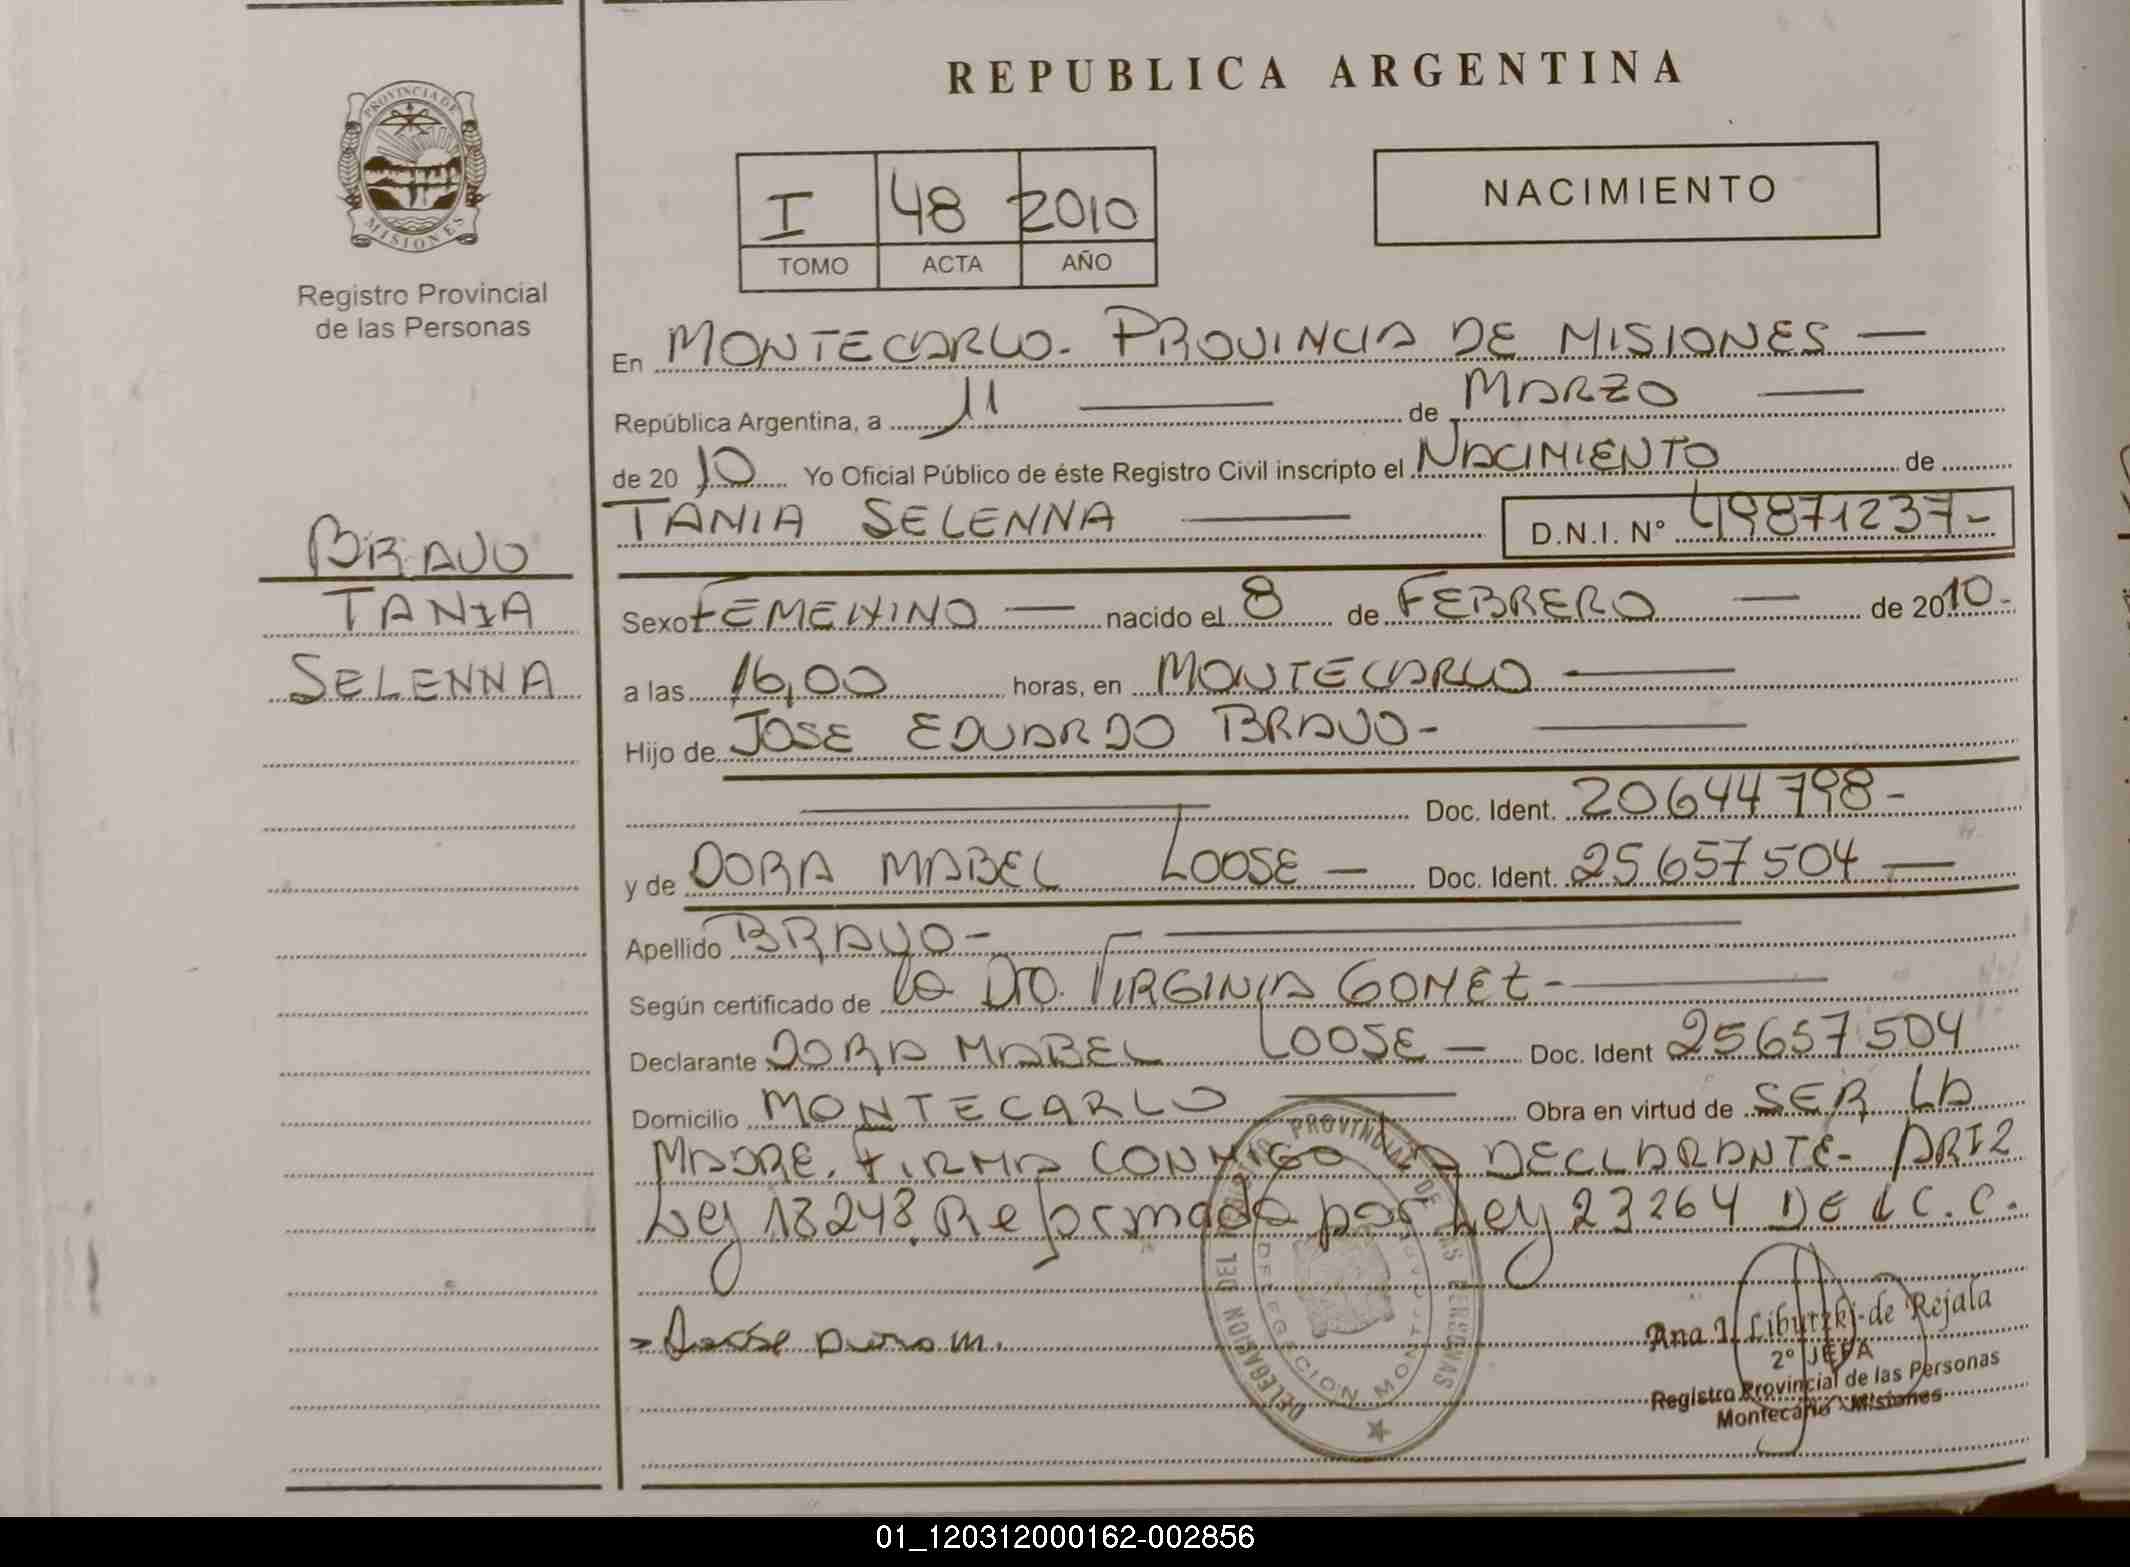 REPUBLICA ARGENTINA
PROVINCIA DE
MISIONES
Registro Provincial
de las Personas
I 48 2010
TOMO ACTA AÑO
NACIMIENTO
En MONTECARLO - PROVINCIA DE MISIONES —
República Argentina, a 11 — de MARZO —
de 2010 Yo Oficial Público de éste Registro Civil inscripto el NACIMIENTO de
TANIA SELENNA — D.N.I. Nº 49871237-
BRAVO
TANIA
SELENNA
Sexo FEMENINO — nacido el 8 de FEBRERO — de 2010-
a las 16,00 horas, en MONTECARLO —
Hijo de JOSE EDUARDO BRAVO - —
— Doc. Ident. 20644798-
y de DORA MABEL LOOSE — Doc. Ident. 25657504 —
Apellido BRAVO - —
Según certificado de la Dra. VIRGINIA GOMEZ - —
Declarante DORA MABEL LOOSE — Doc. Ident 25657504
Domicilio MONTECARLO — Obra en virtud de SER LA
MADRE. FIRMA CONMIGO LA DECLARANTE- ART 2
Ley 18248. Reformada por Ley 23264 DEL C.C.
DELEGACION DEL REGISTRO PROVINCIAL DE LAS PERSONAS
Ana I. Liburzki de Rejala
2º JEFA
Registro Provincial de las Personas
Montecarlo - Misiones
01_120312000162-002856